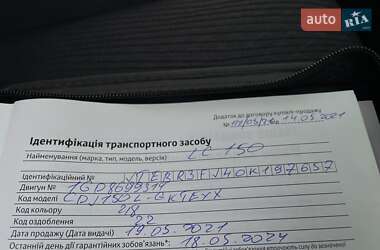 auto RIA
Додаток до договору купівлі-продажу
14.05.2021
Ідентифікація транспортного засобу
Найменування (марка, тип, модель, версія) LC 150
Ідентифікаційний №
Двигун № 1GD8699314
Код моделі CDJ150L-GKTEYX
Код кольору 218
Код оздоблення 22
Дата продажу (Дата видачі) 19.05.2021
Останній день дії гарантійних зобов'язань* 18.05.2024